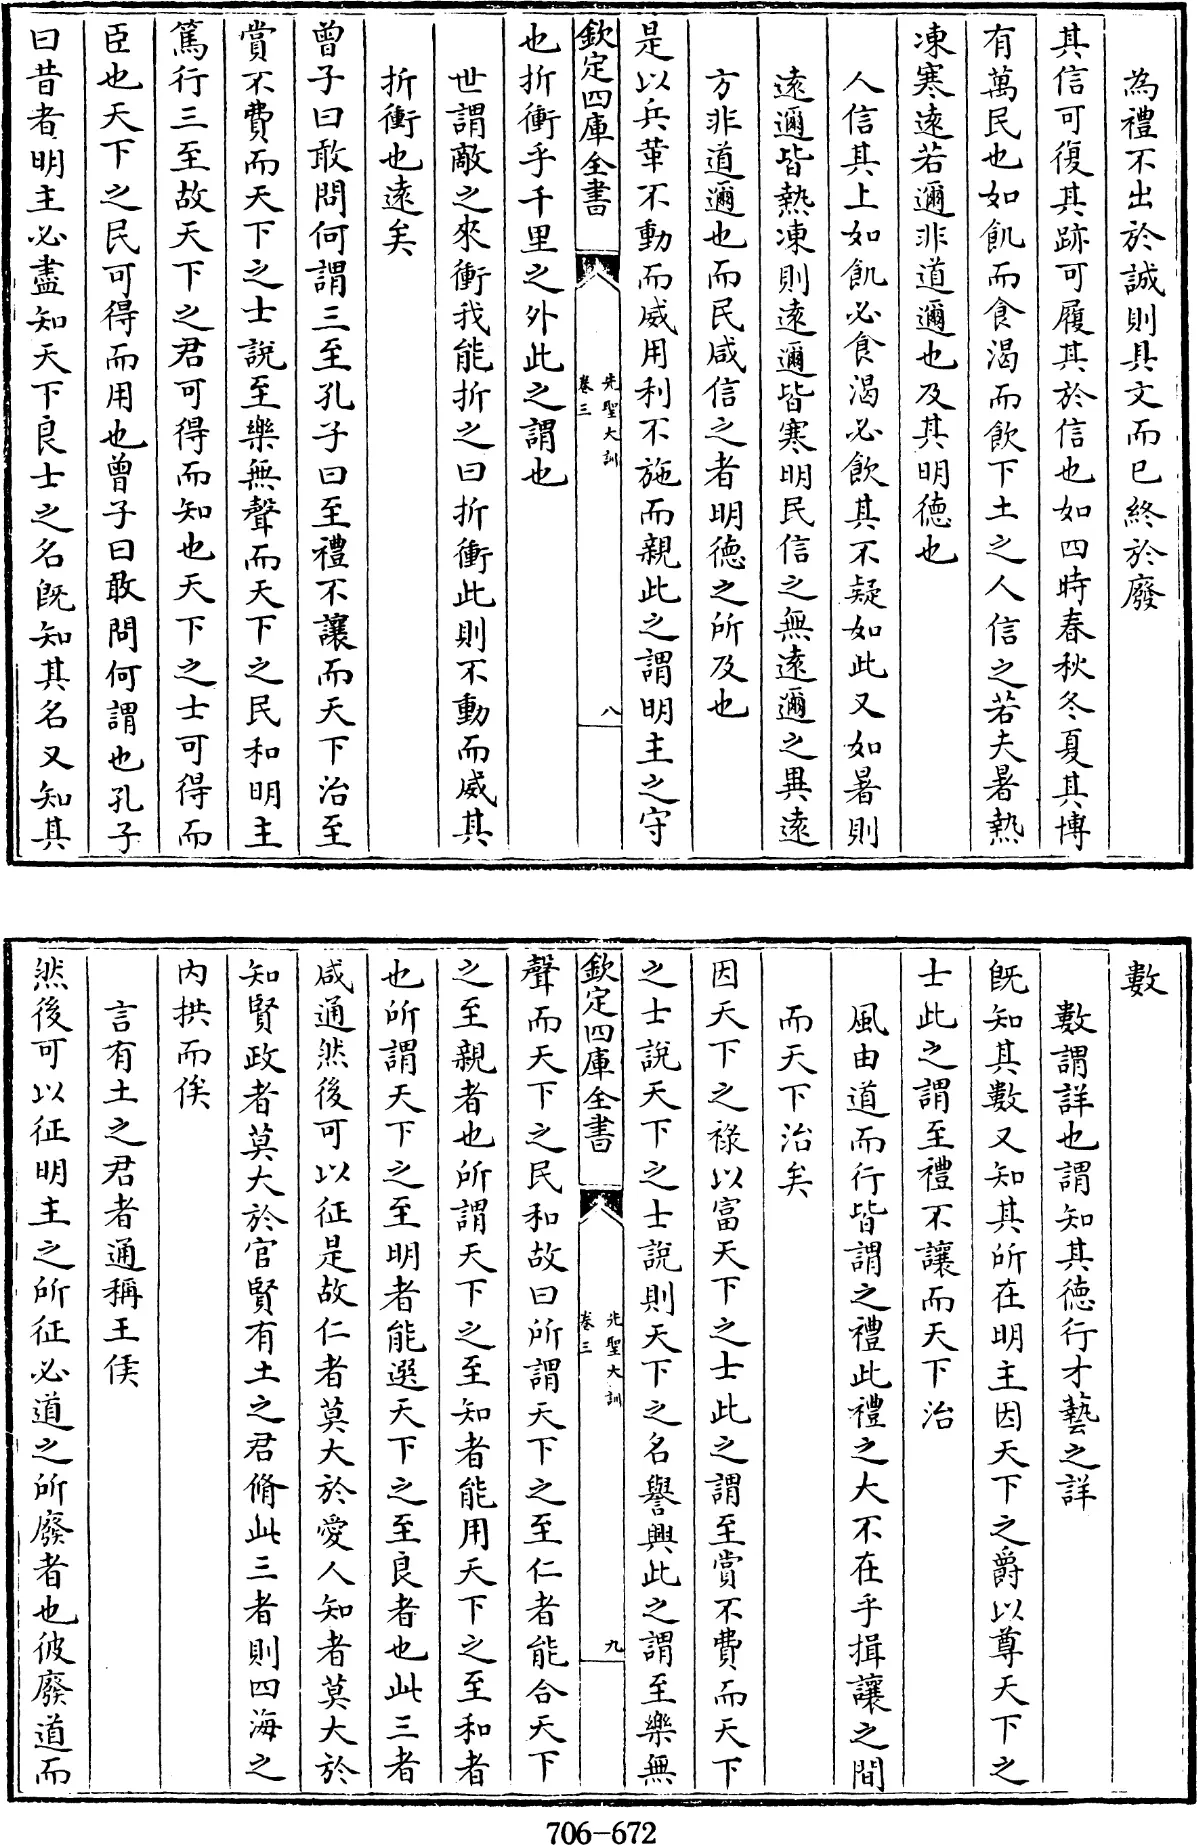 為禮不出於誠則具文而已終於廢
其信可復其跡可履其於信也如四時春秋冬夏其博
有萬民也如飢而食渴而飲下土之人信之若夫暑熱
凍寒遠若邇非道邇也及其明德也
人信其上如飢必食渴必飲其不疑如此又如暑則
遠邇皆熱凍則遠邇皆寒明民信之無遠邇之異遠
方非道邇也而民咸信之者明德之所及也
是以兵革不動而威用利不施而親此之謂明主之守
欽定四庫全書
先聖大訓
卷三
八
也折衝乎千里之外此之謂也
世謂敵之來衝我能折之曰折衝此則不動而威其
折衝也遠矣
曾子曰敢問何謂三至孔子曰至禮不讓而天下治至
賞不費而天下之士說至樂無聲而天下之民和明主
篤行三至故天下之君可得而知也天下之士可得而
臣也天下之民可得而用也曾子曰敢問何謂也孔子
曰昔者明主必盡知天下良士之名既知其名又知其
數
數謂詳也謂知其德行才藝之詳
既知其數又知其所在明主因天下之爵以尊天下之
士此之謂至禮不讓而天下治
風由道而行皆謂之禮此禮之大不在乎揖讓之間
而天下治矣
因天下之祿以富天下之士此之謂至賞不費而天下
之士說天下之士說則天下之名譽興此之謂至樂無
欽定四庫全書
先聖大訓
卷三
九
聲而天下之民和故曰所謂天下之至仁者能合天下
之至親者也所謂天下之至知者能用天下之至和者
也所謂天下之至明者能選天下之至良者也此三者
咸通然後可以征是故仁者莫大於愛人知者莫大於
知賢政者莫大於官賢有土之君脩此三者則四海之
內拱而俟
言有土之君者通稱王侯
然後可以征明主之所征必道之所廢者也彼廢道而
706-672